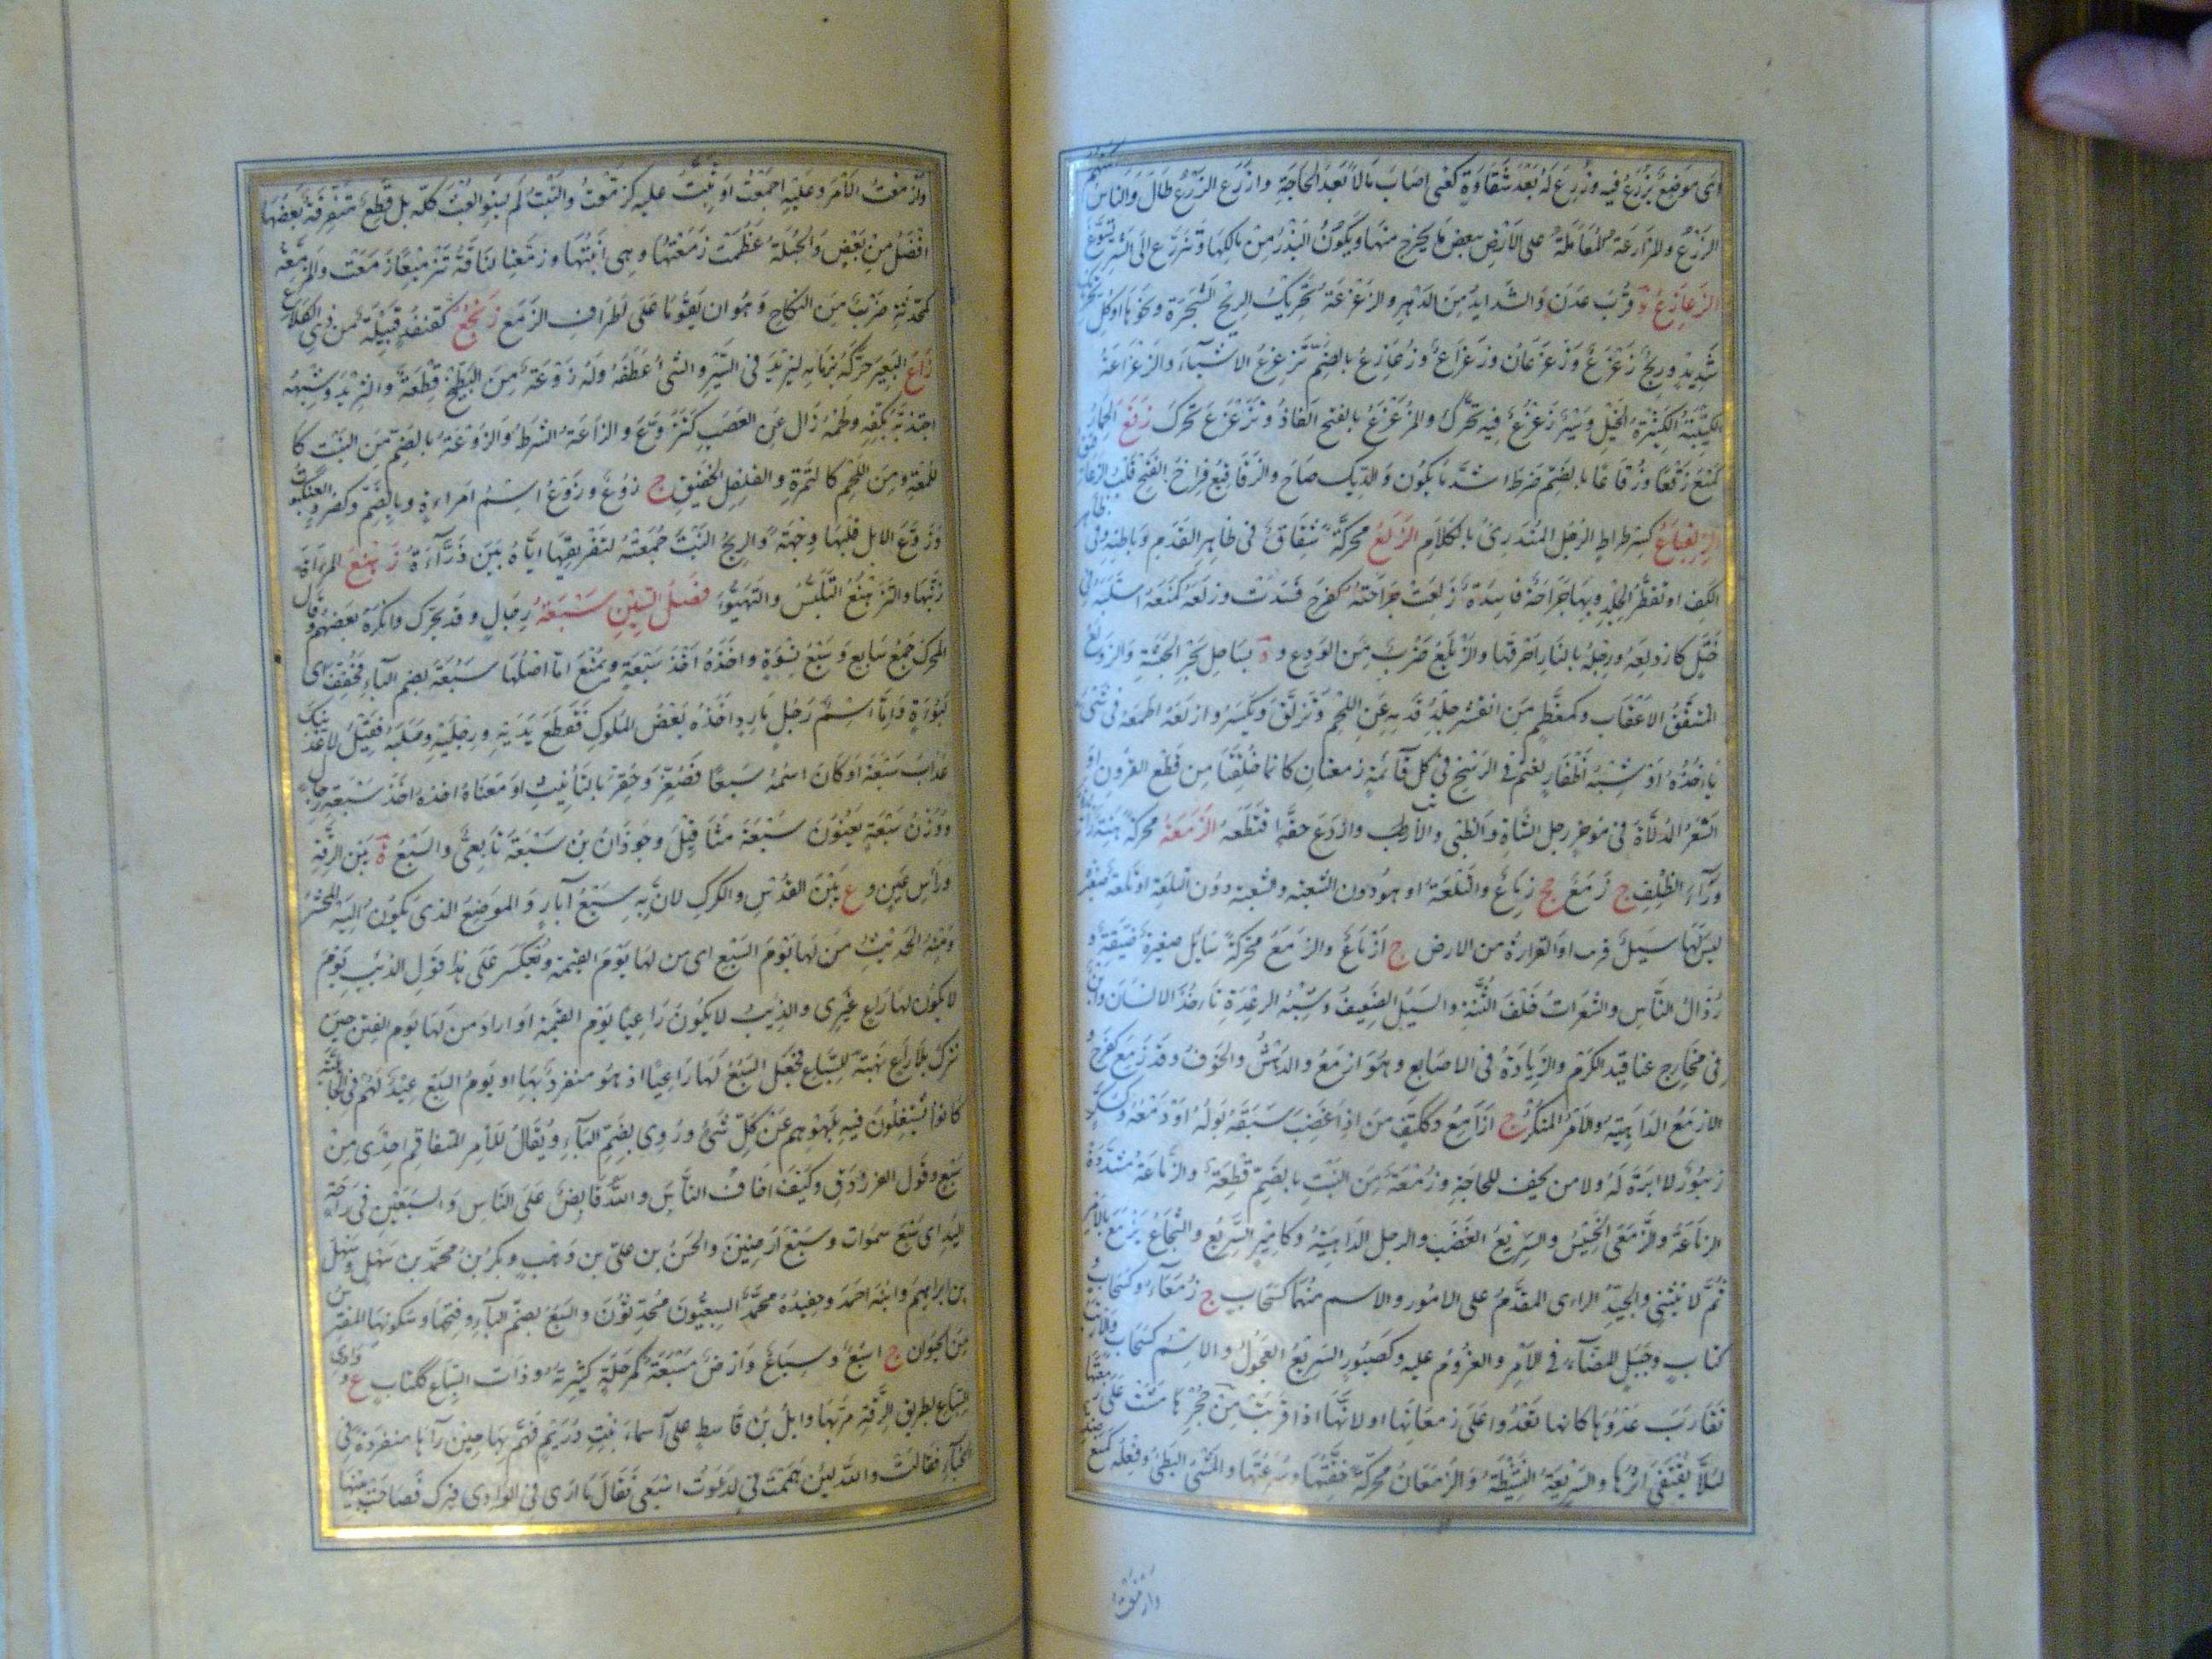 اى موضع يزرع فيه وزرع له بعد شقاوة كعنى اصاب مالا بعد الحاجة وازرع الزرع طال والناس
الزرع والمزارعة المعاملة على الارض ببعض ما يخرج منها ويكون البذر من مالكها وتزرع الى الشر تسرع
الزعازع ة قرب عدن والشدايد من الدهر والزعزعة تحريك الريح الشجرة ونحوها او كل تحريك
شديد وريح زعزع وزعزعان وزعزاع وزعازع بالضم تزعزع الاشياء والزعزاعة
الكتيبة الكثيرة الخيل وسير زعزع فيه تحرك والمزعزع بالفتح الفالوذ وتزعزع تحرك زقع الحمار
كمنع زقعا وزقاعا بالضم ضرط اشد ما يكون والديك صاح والزقاقيع فراخ القبج
الزلنباع كسرطراط الرجل المندرئ بالكلام الزلع محركة شقاق فى ظاهر القدم وباطنه وفى
الكف او تفطر الجلد وبها جراحة فاسدة زلعت جراحته كفرح فسدت وزلعه كمنعه استلبه فى
ختل كازدلعه ورجله بالنار احرقها والزيلع ضرب من الودع و ة بساحل بحر الحبشة
المشقق الاعقاب وكمعظم من انقشر جلد قدمه عن اللحم وتزلع تكسر وازلعه اطمعه فى شئ
ياخذه او شبه اظفار الغنم فى الرسغ فى كل قائمة زمعتان كانما خلقتا من قطع القرون او
الشعر المدلاة فى موخر رجل الشاة والظبى والارنب وازدع حقه اقتطعه الزمعة محركة هنة زائدة
وراء الظلف ج زمع جج زماع والتلعة او هو دون الشعبة والشعبة دون التلعة او تلعة صغيرة
ليس لها سيل قرب او القرارة من الارض ج ازماع والزمع محركة سائل صغيرة ضيقة و
رذال الناس والشعرات خلف الثنة والسيل الضعيف وشبه الرعدة تاخذ الانسان
فى مخارج عناقيد الكرم والزيادة فى الاصابع وهو ازمع والدهش والخوف وقد زمع كفرح و
الازمع الداهية والامر المنكر ج ازامع وككتف من اذا غضب سبقه بوله او دمعه
زنبور لا ابرة له ولا من يخف للحاجة وزمعة من النبت بالضم قطعة والزماعة مشددة
الزماعة والزمعى الخسيس والسريع الغضب والرجل الداهية وكامير السريع والشجاع يزمع بالامر
ثم لا ينثنى والجيد الراى المقدم على الامور والاسم منهما كسحاب ج زمعاء وكسحاب و
كتاب وجبل المضاء فى الامر والعزوم عليه وكصبور السريع العجول والاسم كسحاب والارنب
تقارب عدوها كانها تعدوا على زمعاتها او لانها اذا قربت من جحرها مشت على زمعتها
لئلا يقتفى اثرها والسريعة النشيطة والزمعان محركة خفتها وسرعتها والمشى البطئ وفعله كمنع
وازمعت
وازمعت الامر وعليه اجمعت او ثبت عليه كزمعت والنبت لم يستو العشب كله بل قطع متفرقة بعضها
افضل من بعض والحبلة عظمت زمعتها وهى ابنتها وزمعنا لناقة تزميعا زمعت والمزمعة
كمحدثة ضرب من النكاح وهو ان يقوما على اطراف الزمع زنجع كقنفذ قبيلة من ذى الكلاع
زاع البعير حركه بزمامه ليزيد فى السير والشئ عطفه وله زوعة من البطيخ قطعة والثريد وشبهه
اجتذبه بكفه ولحمه زال عن العصب كتزوع والزاعة الشرط والزوعة بالضم من النبت كا
للمعة ومن اللحم كالتمرة والقلقل الخفيف ج زوع وزوع اسم امراءة وبالضم وكصرد العنكبوت
وزوع الابل قلبها وجهة والريح النبت جمعته لتفريقها اياه بين ذراة زهنع المراة
زينها والتزهنع التلبس والتهيؤ فصل السين سبعة رجال وقد يحرك وانكره بعضهم وقال
المحرك جمع سابع وسبع نسوة واخذه اخذ سبعة ويمنع اما اصلها سبعة بضم الباء فخفف اى
لبوءة واما اسم رجل مارد اخذه بعض الملوك فقطع يديه ورجليه وصلبه فقيل لاعذبنك
عذاب سبعة او كان اسمه سبعا فصغر وحقر بالتانيث او معناه اخذه اخذ سبعة رجال
ووزن سبعة يعنون سبعة مثاقيل وجوذان بن سبعة تابعى والسبع ة بين الرقة
وراس عين و ع بين القدس والكرك لان به سبع آبار والموضع الذى يكون اليه المحشر
ومنه الحديث من لها يوم السبع اى من لها يوم القيمة ويعكر على هذا قول الذئب يوم
لا يكون لها راع غيرى والذئب لا يكون راعيا يوم القيمة او اراد من لها يوم الفتن حين
تترك بلا راع نهبة للسباع فجعل السبع لها راعيا اذ هو منفرد بها او يوم السبع عيد لهم فى الجاهلية
كانوا يشتغلون فيه بلهوهم عن كل شئ وروى بضم الباء ويقال للامر المتفاقم احدى من
سبع وقول الفرزدق وكيف اخاف الناس والله قابض على الناس والسبعين فى راحة
اليد اى سبع سموات وسبع ارضين والحسن بن على بن وهب وبكر بن محمد بن سهل وسهل
بن ابراهيم وابنه احمد وحفيده محمد السبعيون محدثون والسبع بضم الباء وفتحها وسكونها المفترس
من الحيوان ج اسبع وسباع وارض مسبعة كمرحلة كثيرته وذات السباع ككتاب ع ووادى
السباع بطريق الرقة مر بها وايل بن قاسط على اسماء بنت دريم فهم بها حين راها منفردة فى
الخباء فقالت والله لئن هممت بى لدعوت اسبعى فقال ما ارى فى الوادى غيرك فصاحت ببنيها